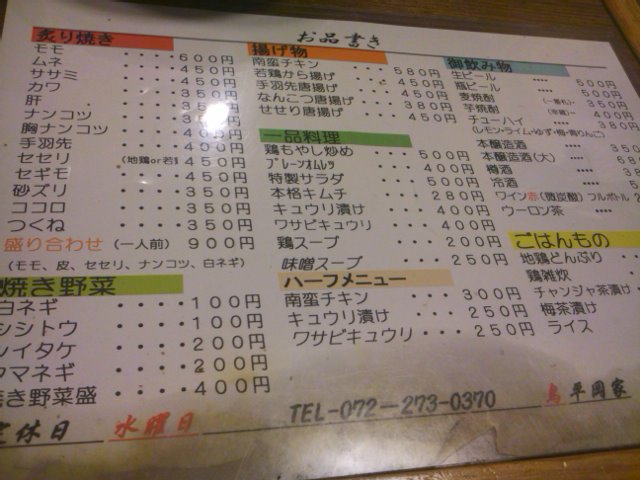 お品書き
炙り焼き
モモ ・・・・600円
ムネ ・・・・450円
ササミ ・・・・450円
カワ ・・・・350円
肝
ナンコツ
胸ナンコツ
手羽先
セセリ (地鶏or若 450円
セギモ ・・・・350円
砂ズリ ・・・・350円
ココロ ・・・・350円
つくね ・・・・350円
盛り合わせ (一人前) 900円
(モモ、皮、セセリ、ナンコツ、白ネギ)
焼き野菜
白ネギ ・・・・100円
シシトウ ・・・・100円
シイタケ ・・・・200円
タマネギ ・・・・200円
焼き野菜盛 ・・・・400円
揚げ物
南蛮チキン ・・・・580円
若鶏から揚げ ・・・・450円
手羽先唐揚げ ・・・・450円
なんこつ唐揚げ ・・・・380円
せせり唐揚げ ・・・・450円
一品料理
鶏もやし炒め ・・・500円
プレーンオムレツ ・・・500円
特製サラダ ・・・400円
本格キムチ ・・・280円
キュウリ漬け ・・・400円
ワサビキュウリ ・・・400円
鶏スープ ・・・200円
味噌スープ ・・・250円
ハーフメニュー
南蛮チキン ・・・300円
キュウリ漬け ・・・250円
ワサビキュウリ ・・・250円
御飲み物
生ビール ・・・・ 500円
瓶ビール ・・・・ 500円
麦焼酎 350円
芋焼酎 400円
チューハイ ・・・・ 380円
(レモン・ライム・ゆず・梅・青りんご)
本醸造酒 ・・・・
本醸造酒(大) ・・・・
樽酒 ・・・・
冷酒 ・・・・
ワイン赤(微炭酸) フルボトル
ウーロン茶 ・・・・
ごはんもの
地鶏どんぶり
鶏雑炊
チャンジャ茶漬け
梅茶漬け
ライス
定休日 水曜日
TEL-072-273-0370
鳥 平岡家